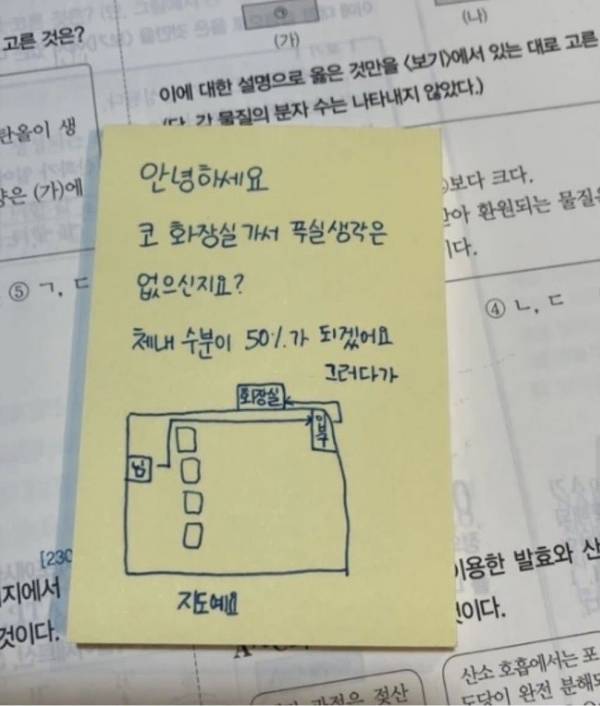 고른 것은?
(가)
(나)
이에 대한 설명으로 옳은 것만을 <보기>에서 있는 대로 고른
(단, 각 물질의 분자 수는 나타내지 않았다.)
탄올이 생
양은 (가)에
보다 크다.
환원되는 물질은
이다.
⑤ ㄱ, ㄷ
④ ㄴ, ㄷ
안녕하세요
코 화장실가서 푹실생각은
없으신지요?
체내 수분이 50%가 되겠어요
그러다가
화장실
입구
님
지도예요
[230
지에서
것이다.
이용한 발효와 산
것이다.
산소 호흡에서는 포
도당이 완전 분해되
과정은 젖산